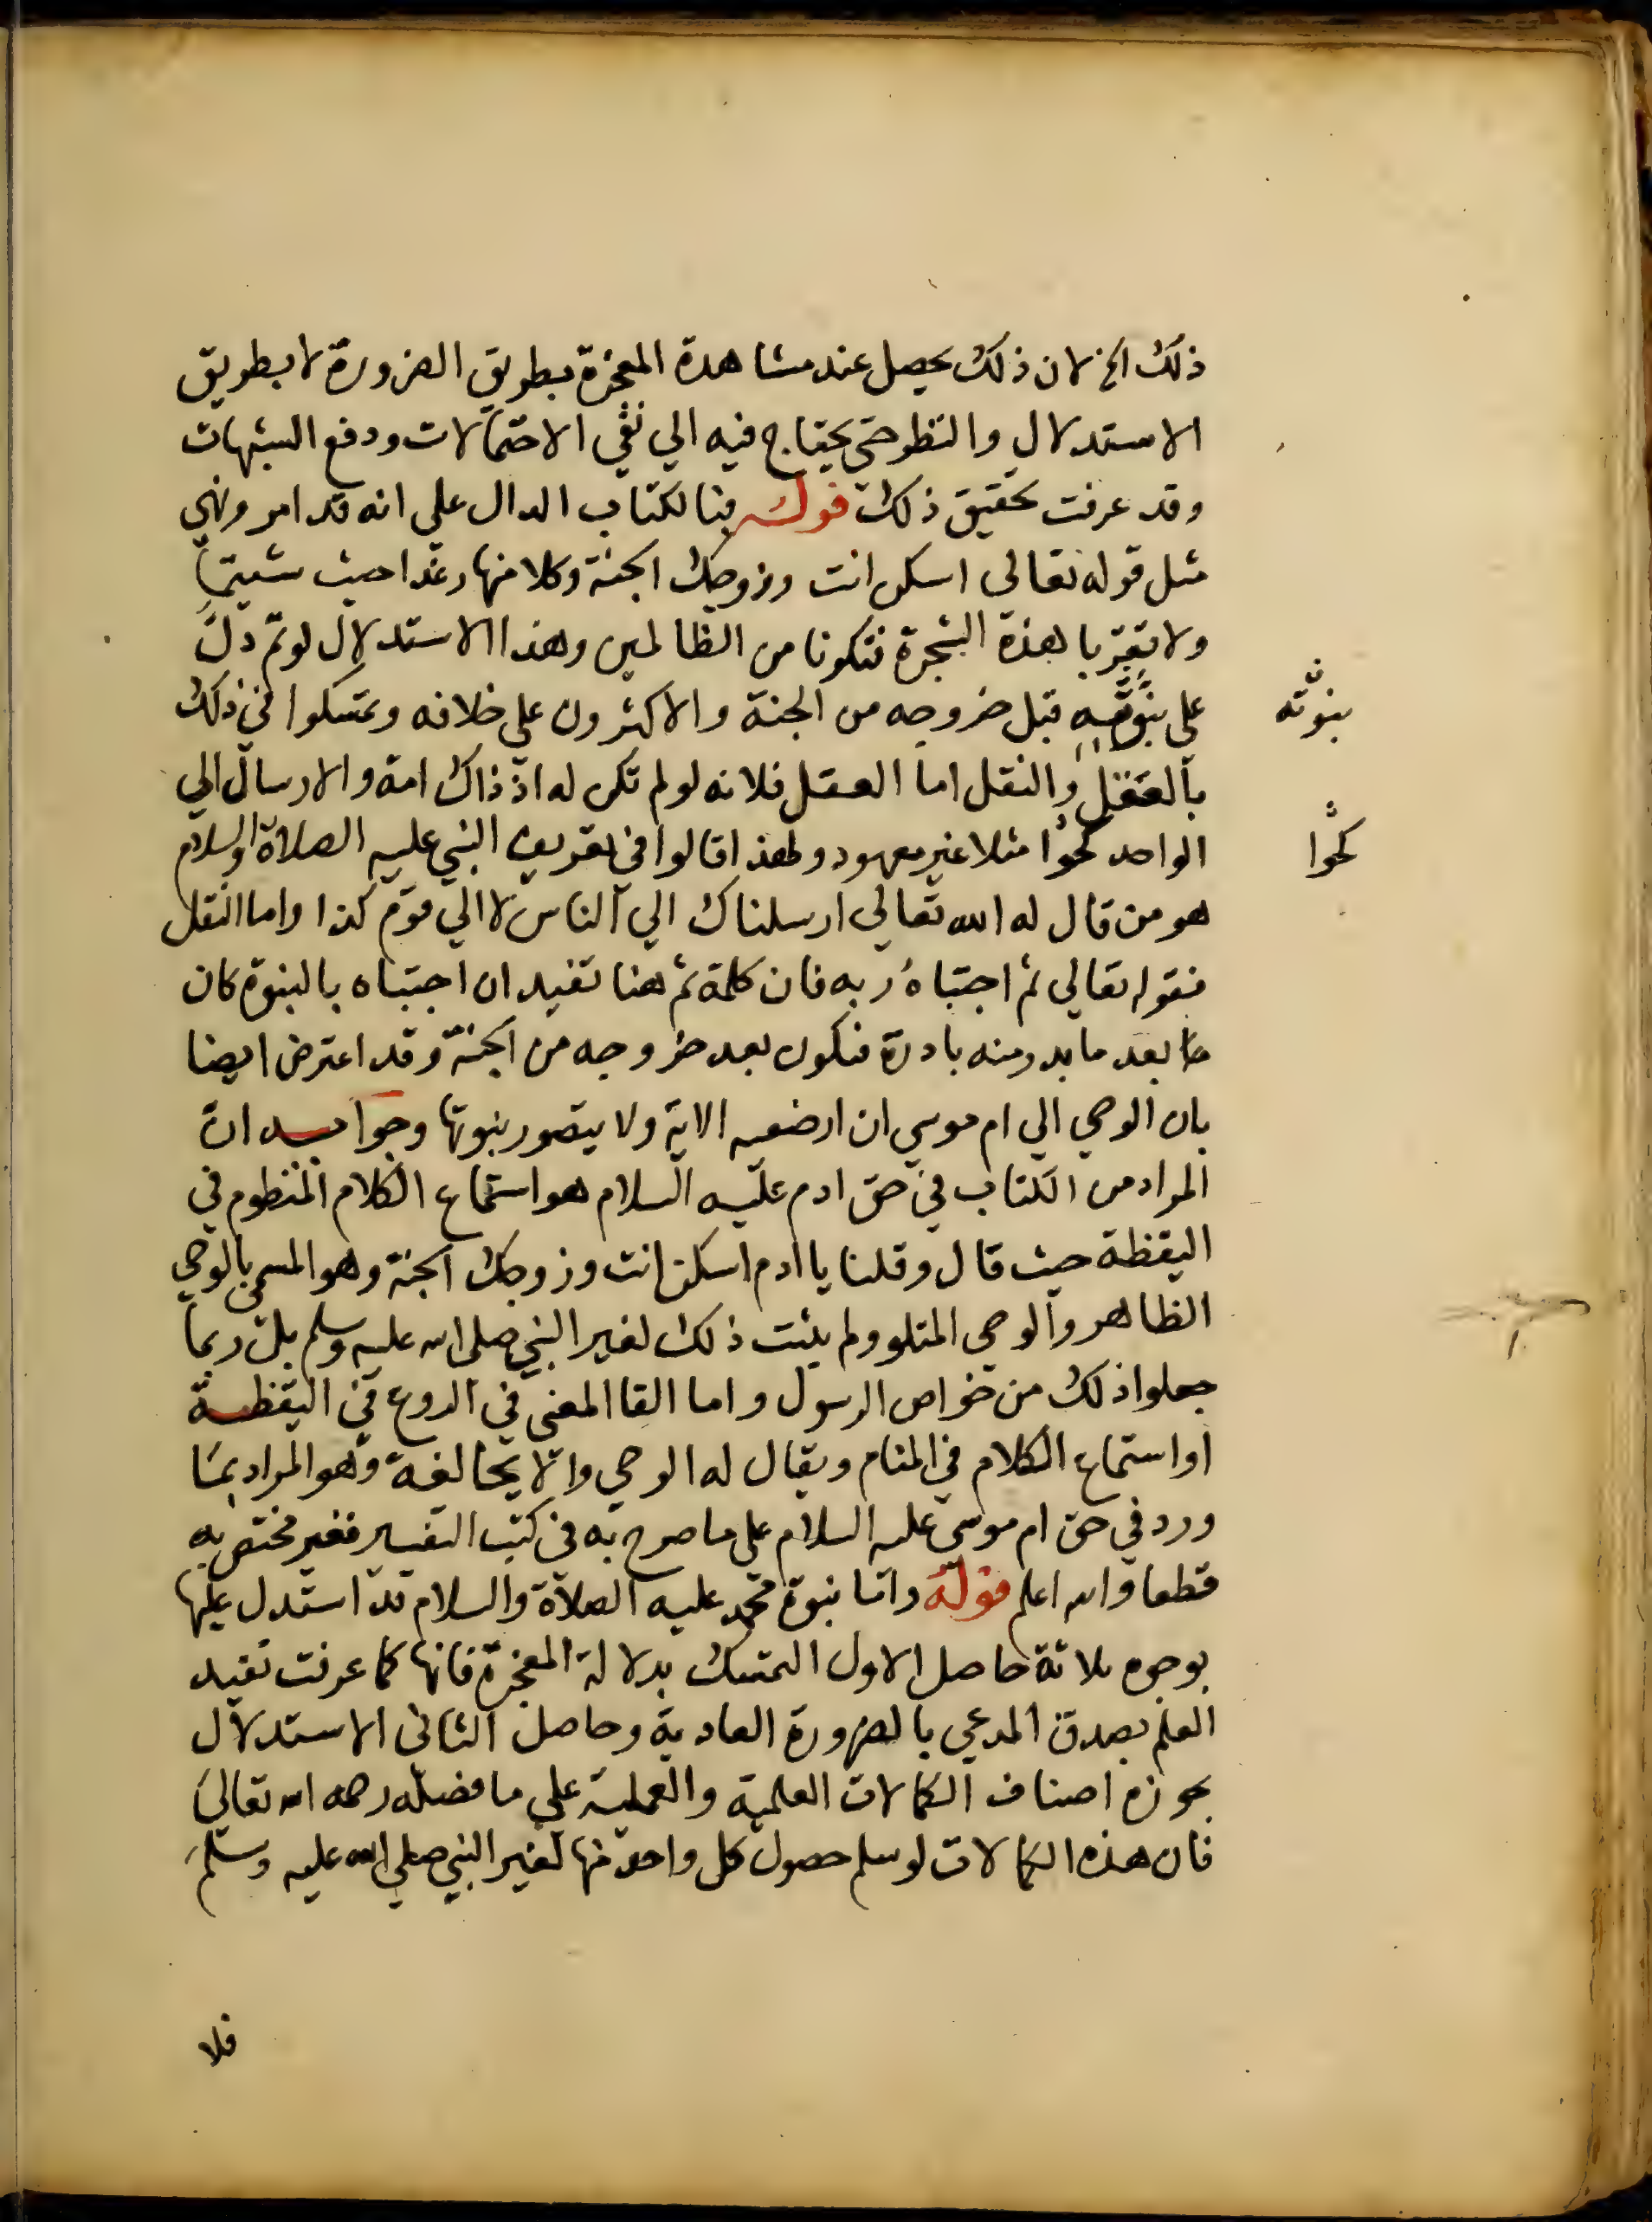 ذلك الخ لان ذلك يحصل عند مشاهدة المعجزة بطريق الضرورة لا بطريق
الاستدلال والنظر حتى يحتاج فيه الي نفي الاحتمالات ودفع الشبهات
وقد عرفت تحقيق ذلك قوله فبالكتاب الدال علي انه قد امر ونهي
مثل قوله تعالى اسكن انت وزوجك الجنة وكلا منها رغدا حيث شئتما
ولا تقربا هذه الشجرة فتكونا من الظالمين وهذا الاستدلال لو تم دل
علي نبوته قبل خروجه من الجنة والاكثرون علي خلافه وتمسكوا في ذلك
بالعقل والنقل اما العقل فلانه لو لم تكن له اذ ذاك امة والارسال الي
الواحد كحوا مثلا غير معهود ولهذا قالوا في تعريف النبي عليه الصلاة والسلام
هو من قال له الله تعالي ارسلناك الي الناس لا الي قوم كذا واما النقل
فقوله تعالي ثم اجتباه ربه فان كلمة ثم هنا تفيد ان اجتباه بالنبوة كان
بعد ما بدر منه بادرة فتكون بعد خروجه من الجنة وقد اعترض ايضا
بان الوحي الي ام موسي ان ارضعيه الاية ولا يتصور نبوتها وجوابه ان
المراد من الكتاب في حق ادم عليه السلام هو استماع الكلام المنظوم في
اليقظة حيث قال وقلنا يا ادم اسكن انت وزوجك الجنة وهو المسمي بالوحي
الظاهر والوحي المتلو ولم يثبت ذلك لغير النبي صلى الله عليه وسلم بل ربما
جعلوا ذلك من خواص الرسول واما القا المعنى في الروع في اليقظة
او استماع الكلام في المنام ويقال له الوحي وهو المراد بما
ورد في حق ام موسى عليه السلام علي ما صرح به في كتب التفسير فغير مختص به
قطعا والله اعلم قوله واما نبوة محمد عليه الصلاة والسلام قد استدل عليها
بوجوه ثلاثة حاصل الاول التمسك بدلالة المعجزة فانها كما عرفت تفيد
العلم بصدق المدعي بالضرورة العادية وحاصل الثاني الاستدلال
بحوزه اصناف الكمالات العلمية والعملية علي ما فصله رحمه الله تعالي
فان هذه الكمالات لو سلم حصول كل واحد منها لغير النبي صلي الله عليه وسلم
فلا
نبوته
كحوا